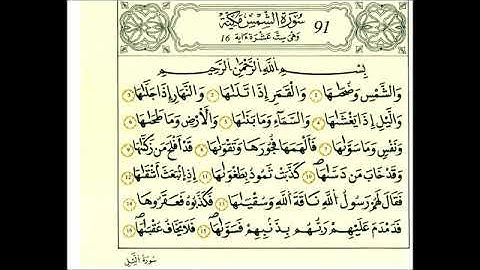 سُورَةُ الشَّمْسِ مَكِّيَّة 91
وَهْىَ سِتَّ عَشْرَةَ ءَايَة 16
بِسْمِ اللَّهِ الرَّحْمَٰنِ الرَّحِيمِ
وَالشَّمْسِ وَضُحَىٰهَا 1 وَالْقَمَرِ إِذَا تَلَىٰهَا 2 وَالنَّهَارِ إِذَا جَلَّىٰهَا 3
وَالَّيْلِ إِذَا يَغْشَىٰهَا 4 وَالسَّمَآءِ وَمَا بَنَىٰهَا 5 وَالْأَرْضِ وَمَا طَحَىٰهَا 6
وَنَفْسٍ وَمَا سَوَّىٰهَا 7 فَأَلْهَمَهَا فُجُورَهَا وَتَقْوَىٰهَا 8 قَدْ أَفْلَحَ مَن زَكَّىٰهَا 9
وَقَدْ خَابَ مَن دَسَّىٰهَا 10 كَذَّبَتْ ثَمُودُ بِطَغْوَىٰهَا 11 إِذِ انۢبَعَثَ أَشْقَىٰهَا 12
فَقَالَ لَهُمْ رَسُولُ اللَّهِ نَاقَةَ اللَّهِ وَسُقْيَٰهَا 13 فَكَذَّبُوهُ فَعَقَرُوهَا 14
فَدَمْدَمَ عَلَيْهِمْ رَبُّهُم بِذَنۢبِهِمْ فَسَوَّىٰهَا 15 فَلَا يَخَافُ عُقْبَٰهَا 16
سُورَةُ الَّيْلِ